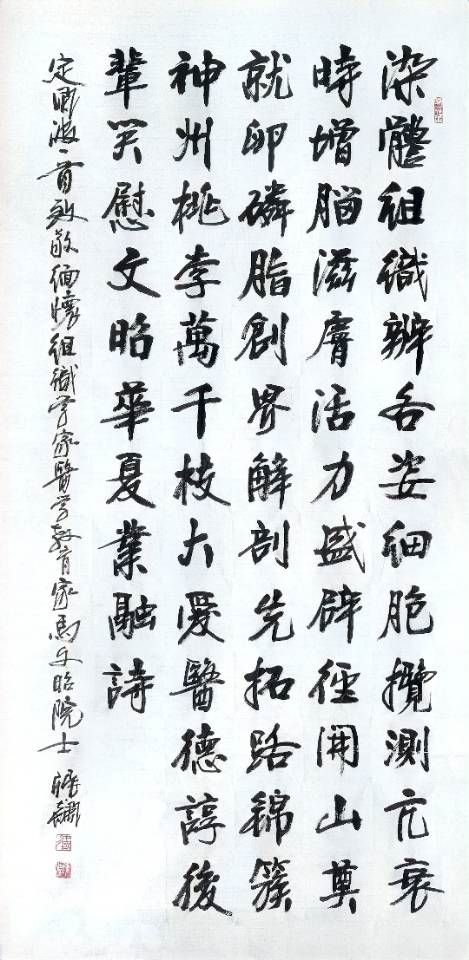 染體組織辨各姿細胞攬測亢衰
時增腦滋膚活力盛辟徑開山奠
就卵磷脂創界解剖先拓路錦簇
神州桃李萬千枝大愛醫德諄後
輩笑慰文昭華夏業融詩
定風波一首致敬緬懷組織学家醫学教育家馬文昭院士